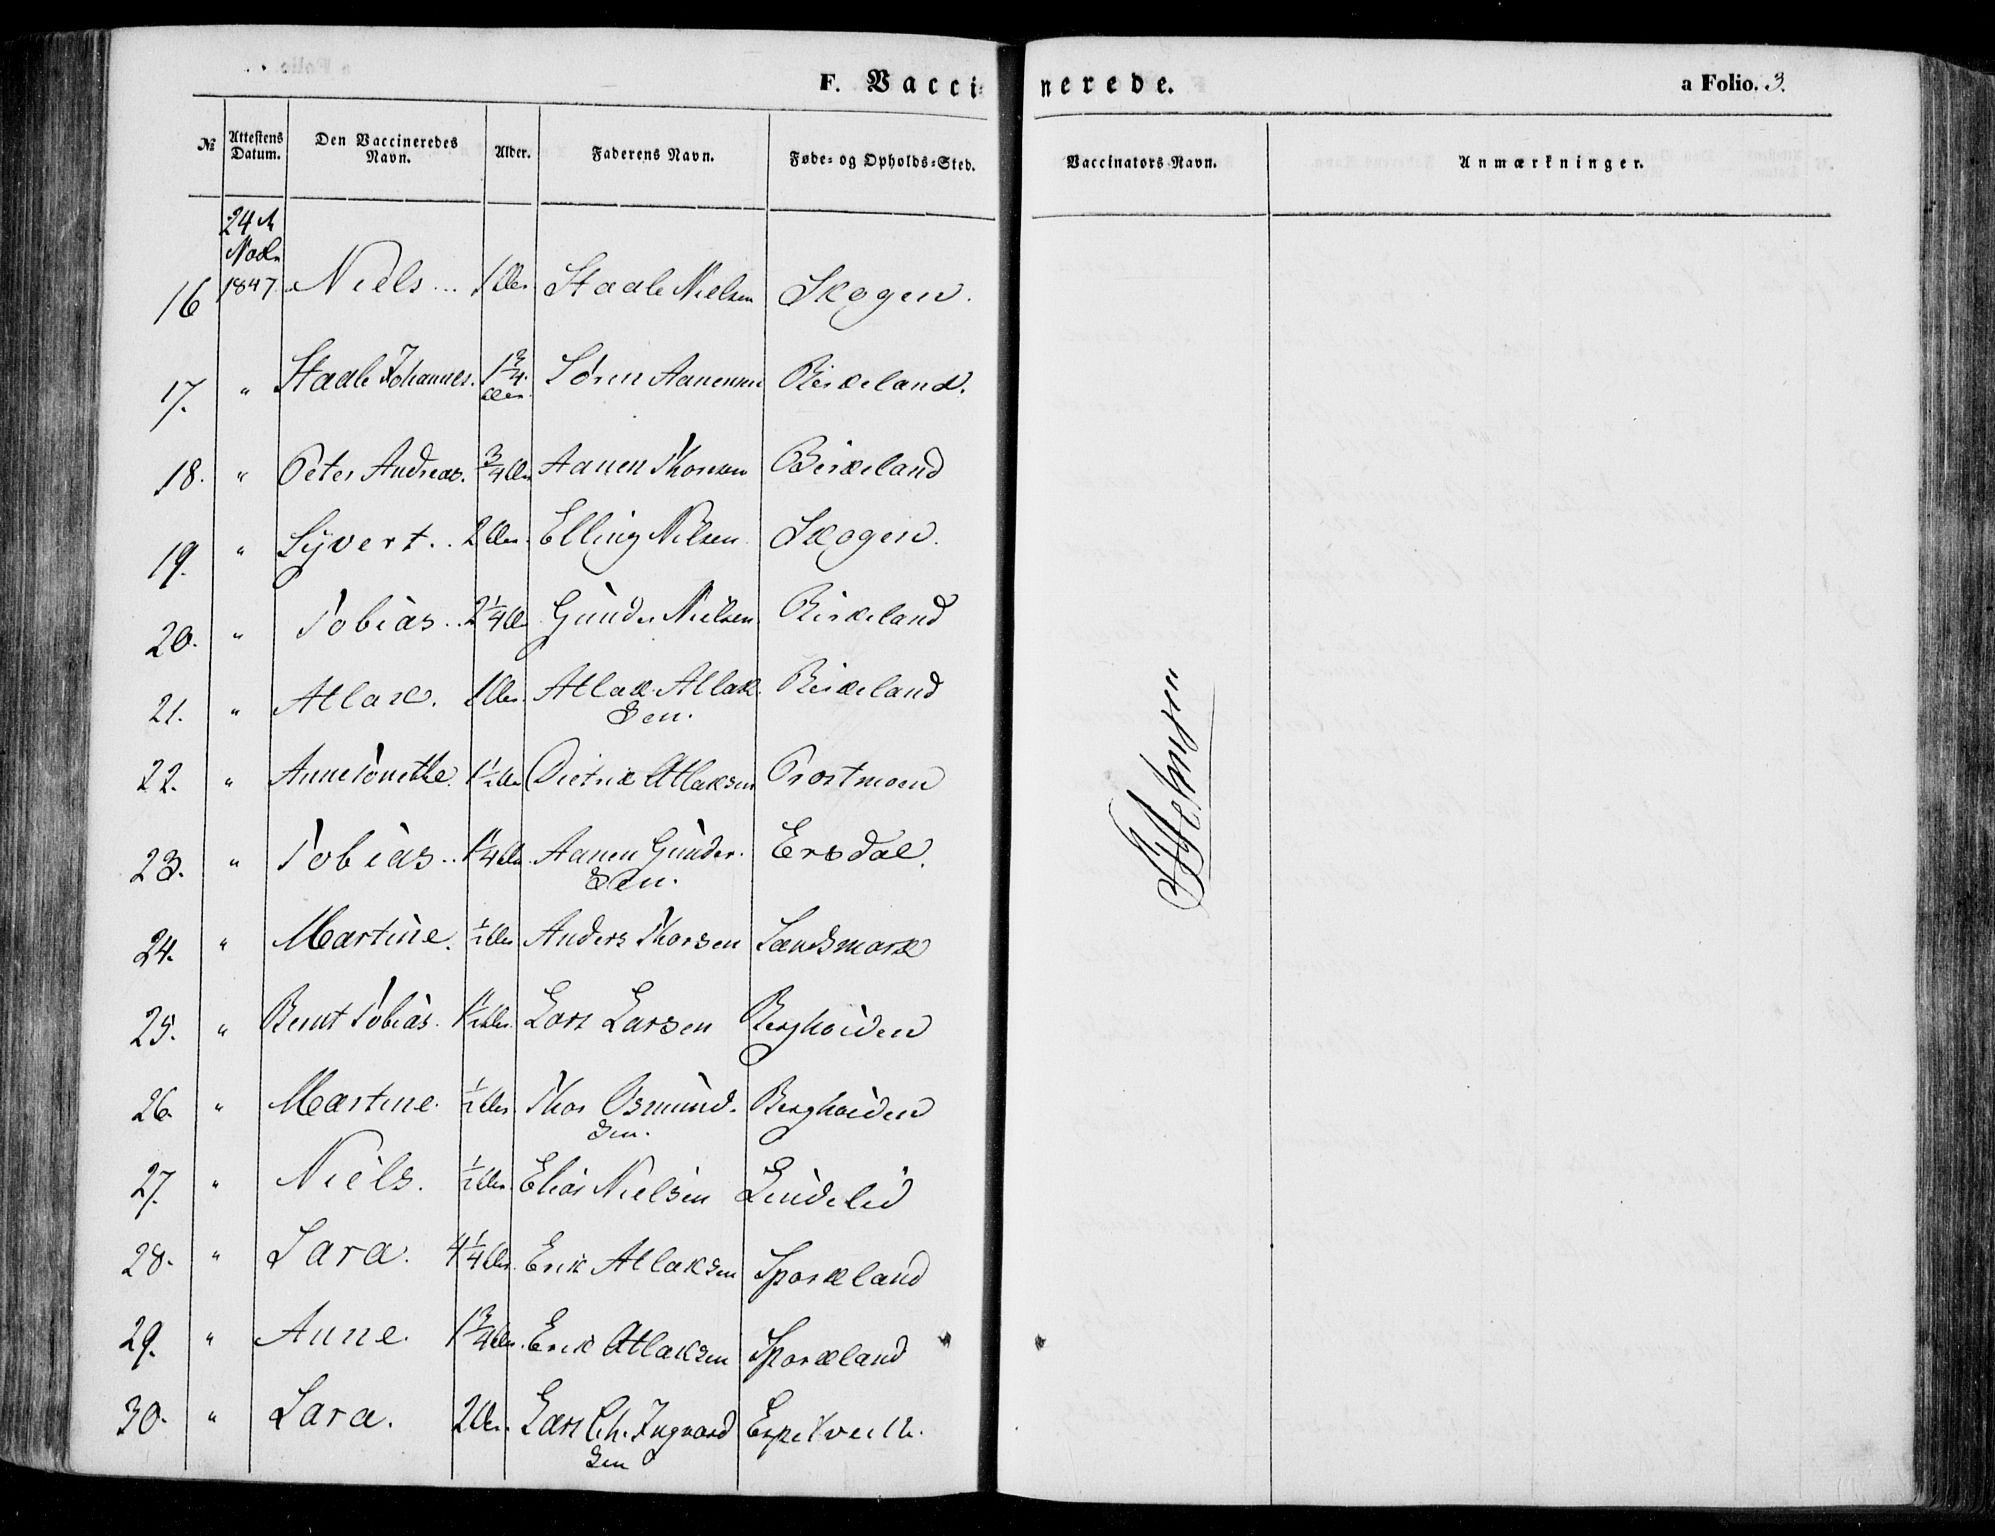 F. Vaccinerede. a Folio. 3.
№ Attestens Datum. Den Vaccineredes Navn. Alder. Faderens Navn. Føde- og Opholds-Sted. Vaccinators Navn. Anmærkninger.
24de
Novbr
16 1847 Niels... 1 Aar Staale Nielsen Skogen.
17. " Staale Johannes. 1 3/4 Aar Søren Aanensen Birkeland.
18. " Peter Andreas. 3/4 Aar Aanen Thorsen Birkeland
19. " Syvert.. 2 Aar. Elling Nilsen Skogen.
20. " Tobias.. 2 1/4 Aar Gunder Nielsen Birkeland
21. " Atlak. 1 Aar. Atlak Atlak
sen. Birkeland
22. " Anne Tonette. 1 1/2 Aar Dietrik Atlaksen Prostmoen
23. " Tobias.. 1 1/4 Aar Aanen Gunder
sen. Ersdal.
24. " Martine. 1/2 Aar Anders Thorsen Landsmark
25. " Bernt Tobias. 1 1/2 Aar. Lars Larsen Bergheiden
26. " Martine. 1/2 Aar Thor Osmund
sen. Bergheiden
27. " Niels. 1/2 Aar Elias Nielsen Lindelid
28. " Sara. 4 1/4 Aar. Erik Atlaksen Sporkland
29. " Anne. 1 3/4 Aar. Erik Atlaksen Sporkland
30. " Sara. 2 Aar. Lars Ch. Ingvard
sen